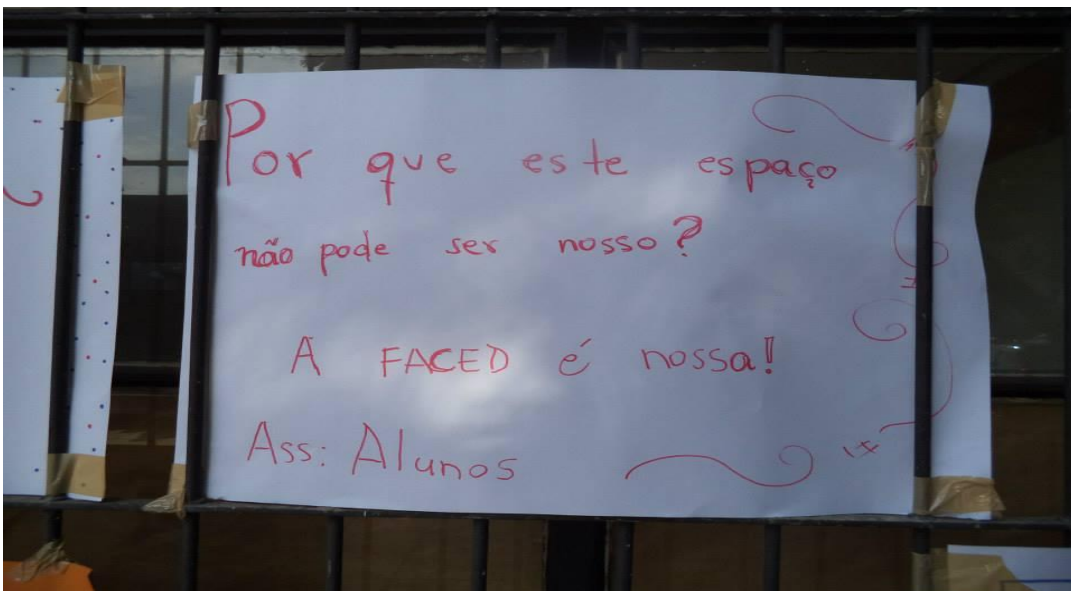 Por que este espaço
não pode ser nosso?
A FACED é nossa!
Ass: Alunos